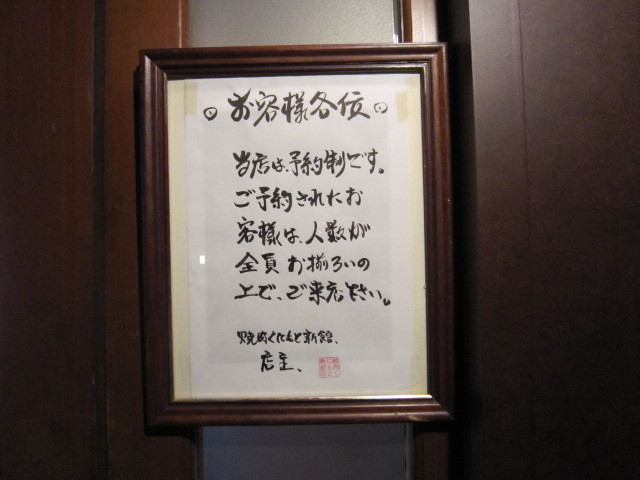 。お客様各位。
当店は、予約制です。
ご予約されたお
客様は、人数が
全員お揃いの
上で、ご来店下さい。
焼肉くにもと新館、
店主、